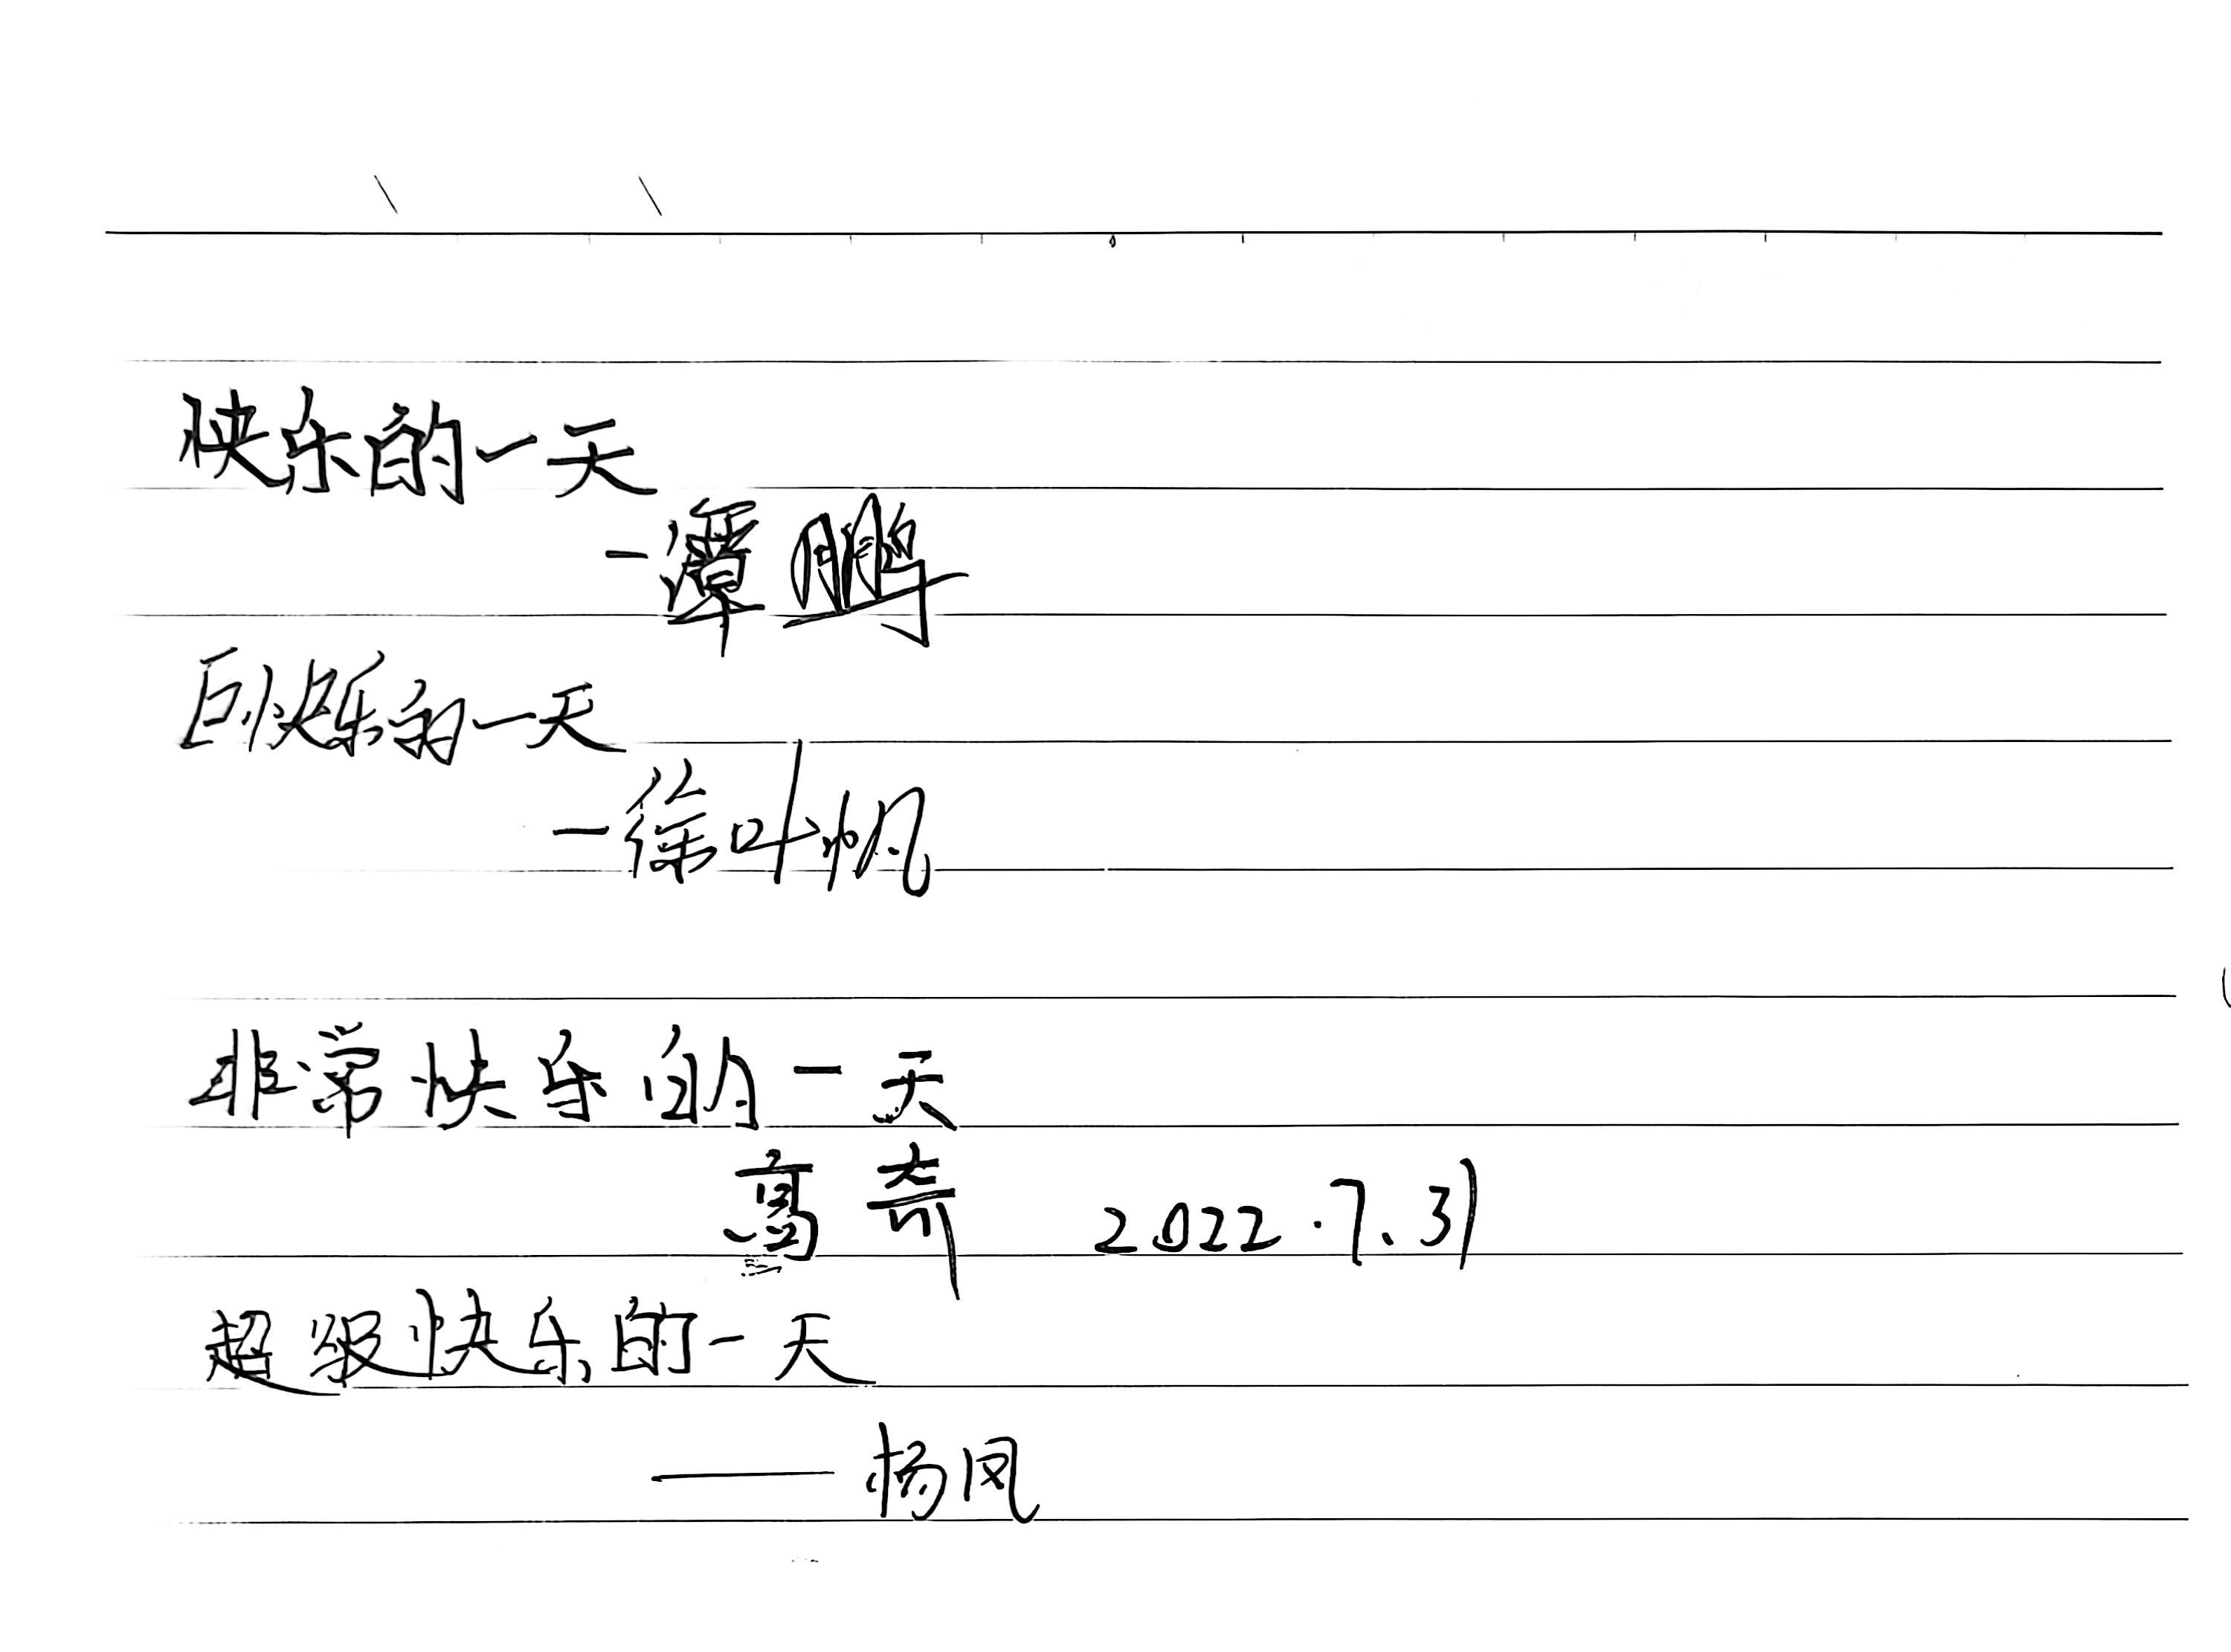 快乐的一天
-谭鹏
巨快乐的一天
-徐叶帆
非常快乐的一天
高奇 2022.7.31
超级快乐的一天
——杨凤